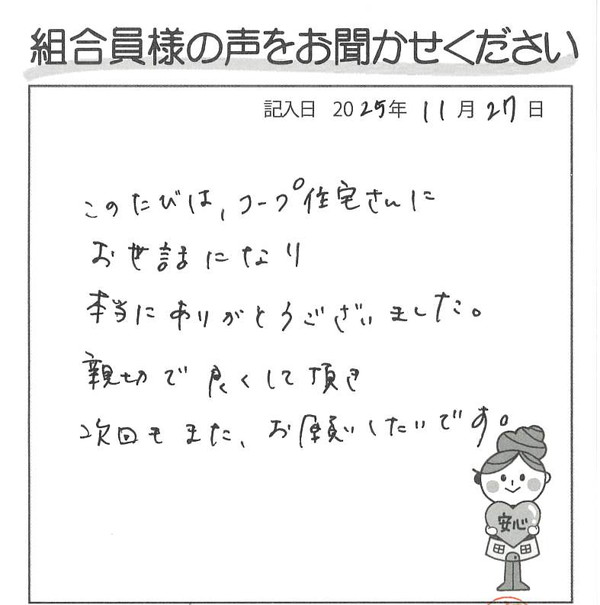 組合員様の声をお聞かせください
記入日 2025年 11月 27日
このたびは、コープ住宅さんに
お世話になり
本当にありがとうございました。
親切で良くして頂き
次回もまた、お願いしたいです。
安心